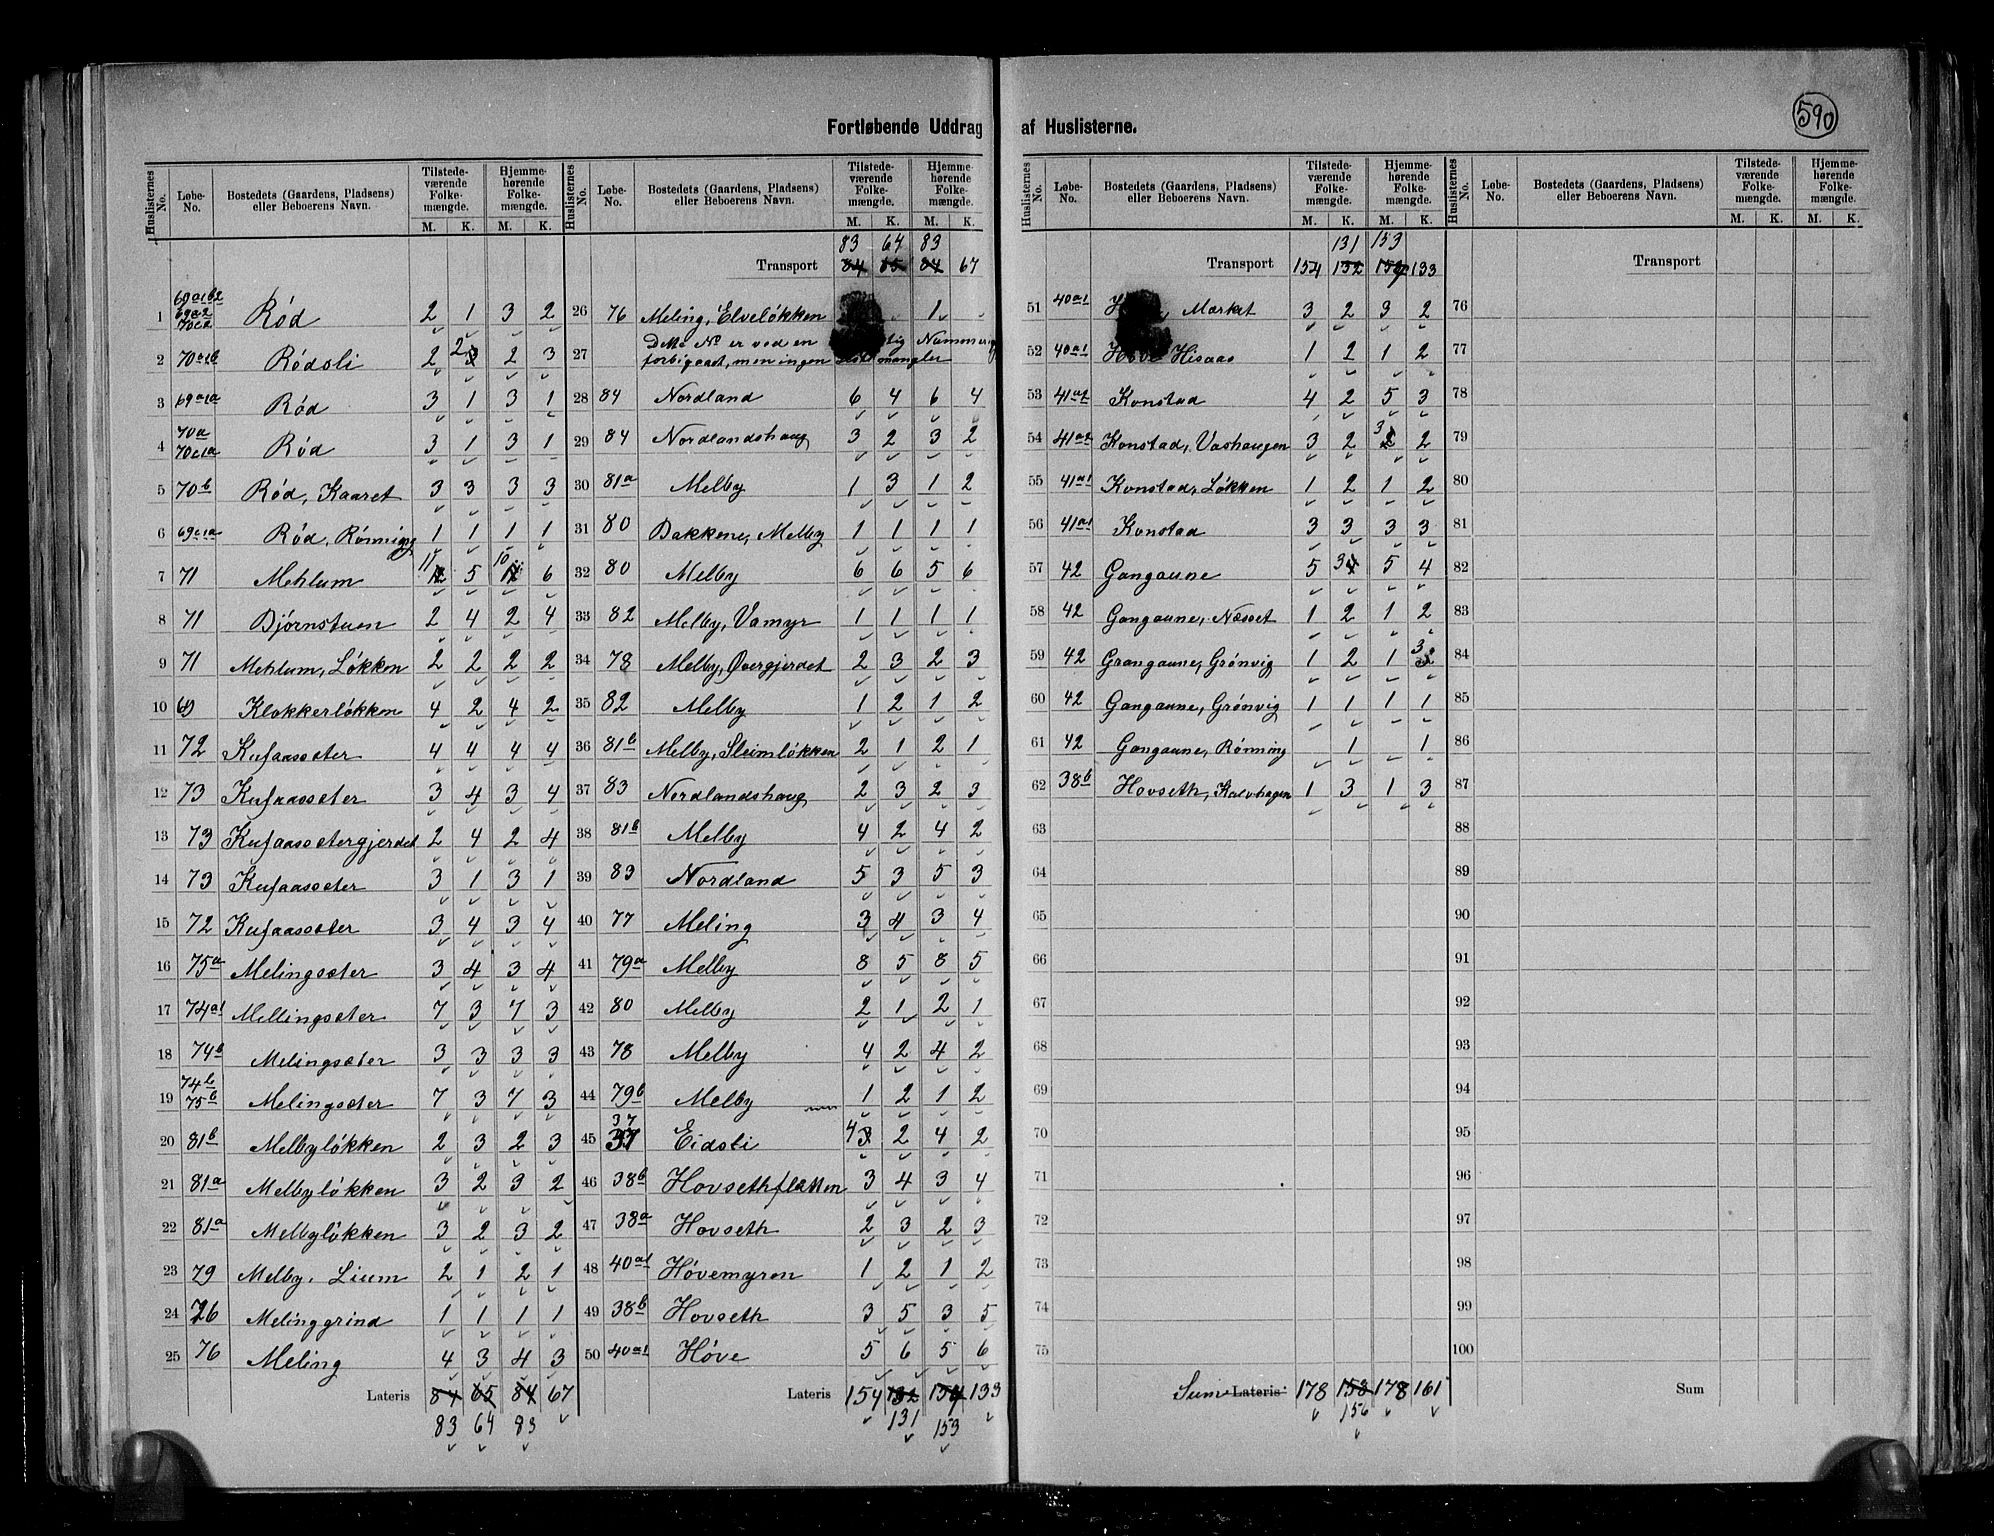 590
Fortløbende Uddrag af Huslisterne.
Huslisternes No. | Løbe-No. | Bostedets (Gaardens, Pladsens) eller Beboerens Navn. | Tilstedeværende Folkemængde. M. K. | Hjemmehørende Folkemængde. M. K.
1 69a1b2 69c2 70c2 Rød 2 1 3 2
2 70a1b Rødsli 2 2 2 3
3 69a1a Rød 3 1 3 1
4 70a 70c1a Rød 3 1 3 1
5 70b Rød, Kaaret 3 3 3 3
6 69c1a Rød, Rønning 1 1 1 1
7 71 Mehlum 11 5 10 6
8 71 Bjørnstuen 2 4 2 4
9 71 Mehlum, Løkken 2 2 2 2
10 69 Klokkerløkken 4 2 4 2
11 72 Kufaassæter 4 4 4 4
12 73 Kufaassæter 3 4 3 4
13 73 Kufaassætergjerdet 2 4 2 4
14 73 Kufaassæter 3 1 3 1
15 72 Kufaassæter 3 4 3 4
16 75a Melingsæter 3 4 3 4
17 74a1 Mellingsæter 7 3 7 3
18 74b Melingsæter 3 3 3 3
19 74b 75b Melingsæter 7 3 7 3
20 81b Melbyløkken 2 3 2 3
21 81a Melbyløkken 3 2 3 2
22 81a Melbyløkken 3 2 3 2
23 79 Melby, Lium 2 1 2 1
24 76 Melinggrind 1 1 1 1
25 76 Meling 4 3 4 3
Lateris 84 65 84 67
83 64 83
Huslisternes No. | Løbe-No. | Bostedets (Gaardens, Pladsens) eller Beboerens Navn. | Tilstedeværende Folkemængde. M. K. | Hjemmehørende Folkemængde. M. K.
83 64 83
Transport 84 65 84 67
26 76 Meling, Elveløkken 1
27 Dette No er ved en Nummerig
forbigaaet, men ingen mangler
28 84 Nordland 6 4 6 4
29 84 Nordlandshaug 3 2 3 2
30 81a Melby 1 3 1 2
31 80 Bakkene, Melby 1 1 1 1
32 80 Melby 6 6 5 6
33 82 Melby, Vamyr 1 1 1 1
34 78 Melby, Øvergjerdet 2 3 2 3
35 82 Melby 1 2 1 2
36 81b Melby, Sleimløkken 2 1 2 1
37 83 Nordlandshaug 2 3 2 3
38 81b Melby 4 2 4 2
39 83 Nordland 5 3 5 3
40 77 Meling 3 4 3 4
41 79a Melby 8 5 8 5
42 80 Melby 2 1 2 1
43 78 Melby 4 2 4 2
44 79b Melby 1 2 1 2
45 37 37 Eidsli 4 3 2 4 2
46 38b Hovsethflatten 3 4 3 4
47 38a Hovseth 2 3 2 3
48 40a1 Høvemyren 1 2 1 2
49 38b Hovseth 3 5 3 5
50 40a1 Høve 5 6 5 6
Lateris 154 132 154 133
131 153
Huslisternes No. | Løbe-No. | Bostedets (Gaardens, Pladsens) eller Beboerens Navn. | Tilstedeværende Folkemængde. M. K. | Hjemmehørende Folkemængde. M. K.
131 153
Transport 154 132 154 133
51 40a1 Market 3 2 3 2
52 40a1 Høve Hisaas 1 2 1 2
53 41a2 Konstad 4 2 5 3
54 41a2 Konstad, Vashaugen 3 2 3 2
55 41a1 Konstad, Løkken 1 2 1 2
56 41a1 Konstad 3 3 3 3
57 42 Gangaune 5 3 5 4
58 42 Gangaune, Næsset 1 2 1 2
59 42 Grangaune, Grønvig 1 2 1 3
60 42 Gangaune, Grønvig 1 1 1 1
61 42 Gangaune, Rønning 1 1
62 38b Hovseth, Kalvhagen 1 3 1 3
63
64
65
66
67
68
69
70
71
72
73
74
75
Sum Lateris 178 158 178 161
156
Huslisternes No. | Løbe-No. | Bostedets (Gaardens, Pladsens) eller Beboerens Navn. | Tilstedeværende Folkemængde. M. K. | Hjemmehørende Folkemængde. M. K.
Transport
76
77
78
79
80
81
82
83
84
85
86
87
88
89
90
91
92
93
94
95
96
97
98
99
100
Sum